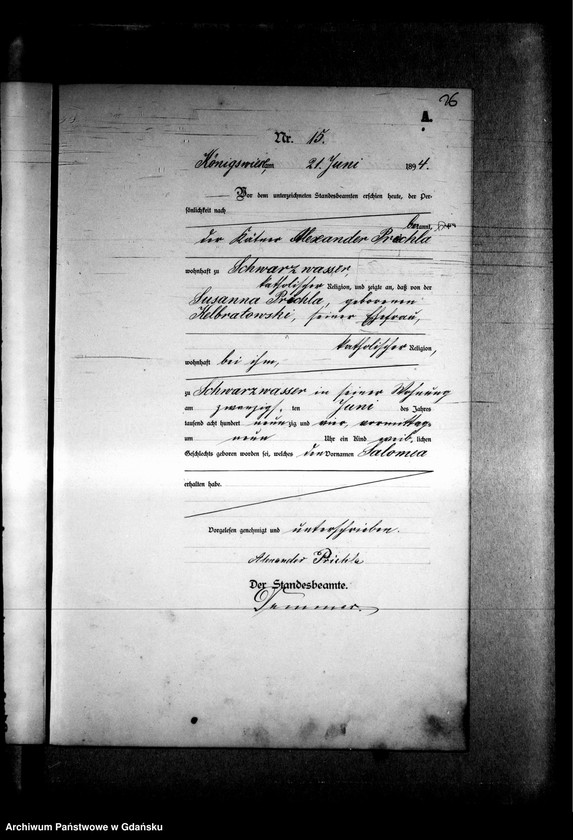 26
A.
Nr. 15.
Königswiese, am 21. Juni 1894.
Vor dem unterzeichneten Standesbeamten erschien heute, der Per-
sönlichkeit nach
kannt,
der Kätner Alexander Prichla
wohnhaft zu Schwarzwasser,
katholischer Religion, und zeigte an, daß von der
Susanna Prichla, geborenen
Kelbratowski, seiner Ehefrau,
katholischer Religion,
wohnhaft bei ihm,
zu Schwarzwasser in seiner Wohnung
am zwanzigsten Juni des Jahres
tausend acht hundert neunzig und vier, vormittags
um neun Uhr ein Kind weiblichen
Geschlechts geboren worden sei, welches den Vornamen Salomea
erhalten habe.
Vorgelesen genehmigt und unterschrieben.
Alexander Prichla
Der Standesbeamte.
Archiwum Państwowe w Gdańsku